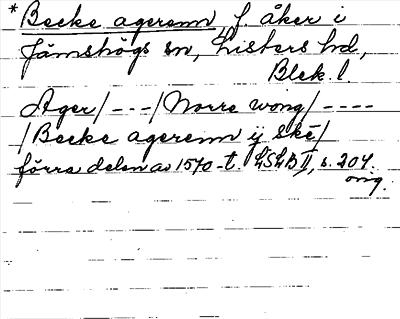 *Becke agerenn, f. åker i
Jämshögs sn, Listers hd,
Blek. l.
Ager/---/Norre wong/----
/Becke agerenn ij skē/
förra delen av 1570-t. LSLB II, s. 204.
orig.